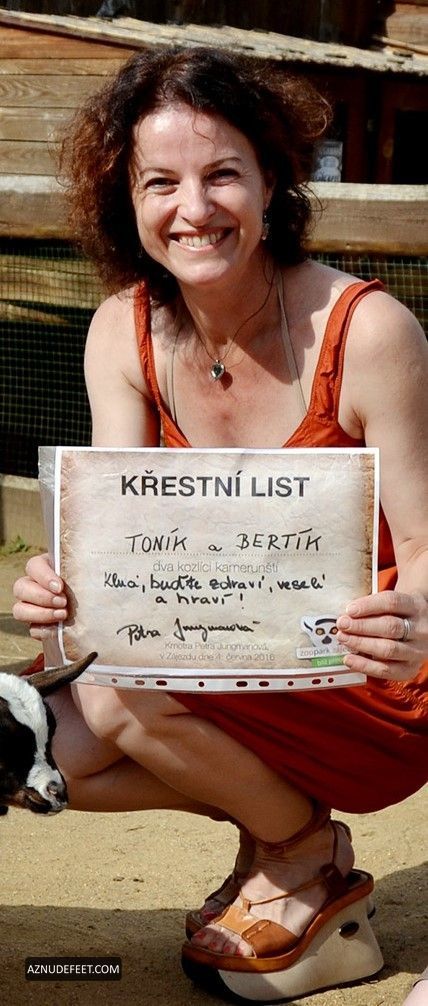 KŘESTNÍ LIST
TONÍK a BERTÍK
dva kozlíci kamerunští
Kluci, buďte zdraví, veselí
a hraví!
Petra Jungmanová
Kmotra Petra Jungmanová,
v Zájezdu dne 4. června 2016
zoopark
AZNUDEFEET.COM